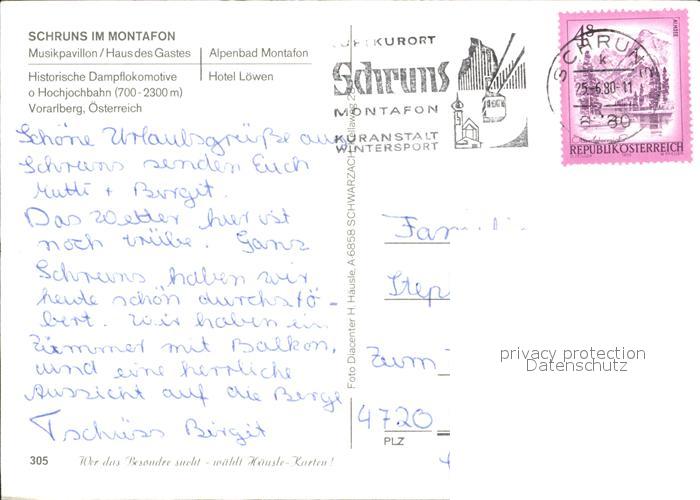 SCHRUNS IM MONTAFON
Musikpavillon / Haus des Gastes
Alpenbad Montafon
Historische Dampflokomotive
Hotel Löwen
o Hochjochbahn (700 - 2300 m)
Vorarlberg, Österreich
LUFTKURORT
Schruns
MONTAFON
KURANSTALT
WINTERSPORT
SCHRUNS
25.-6.80-11
6780
4S
ALMSEE
REPUBLIK ÖSTERREICH
Schöne Urlaubsgrüße aus
Schruns senden Euch
Mutti + Birgit.
Das Wetter hier ist
noch trübe. Ganz
Schruns haben wir
heute schön durchstö-
bert. Wir haben ein
Zimmer mit Balkon,
und eine herrliche
Aussicht auf die Berge
Tschüss Birgit
Foto Diacenter H. Häusle, A-6858 SCHWARZACH
Fami
Step
Zum
4720
PLZ
privacy protection
Datenschutz
305
Wer das Besondre sucht - wählt Häusle-Karten!